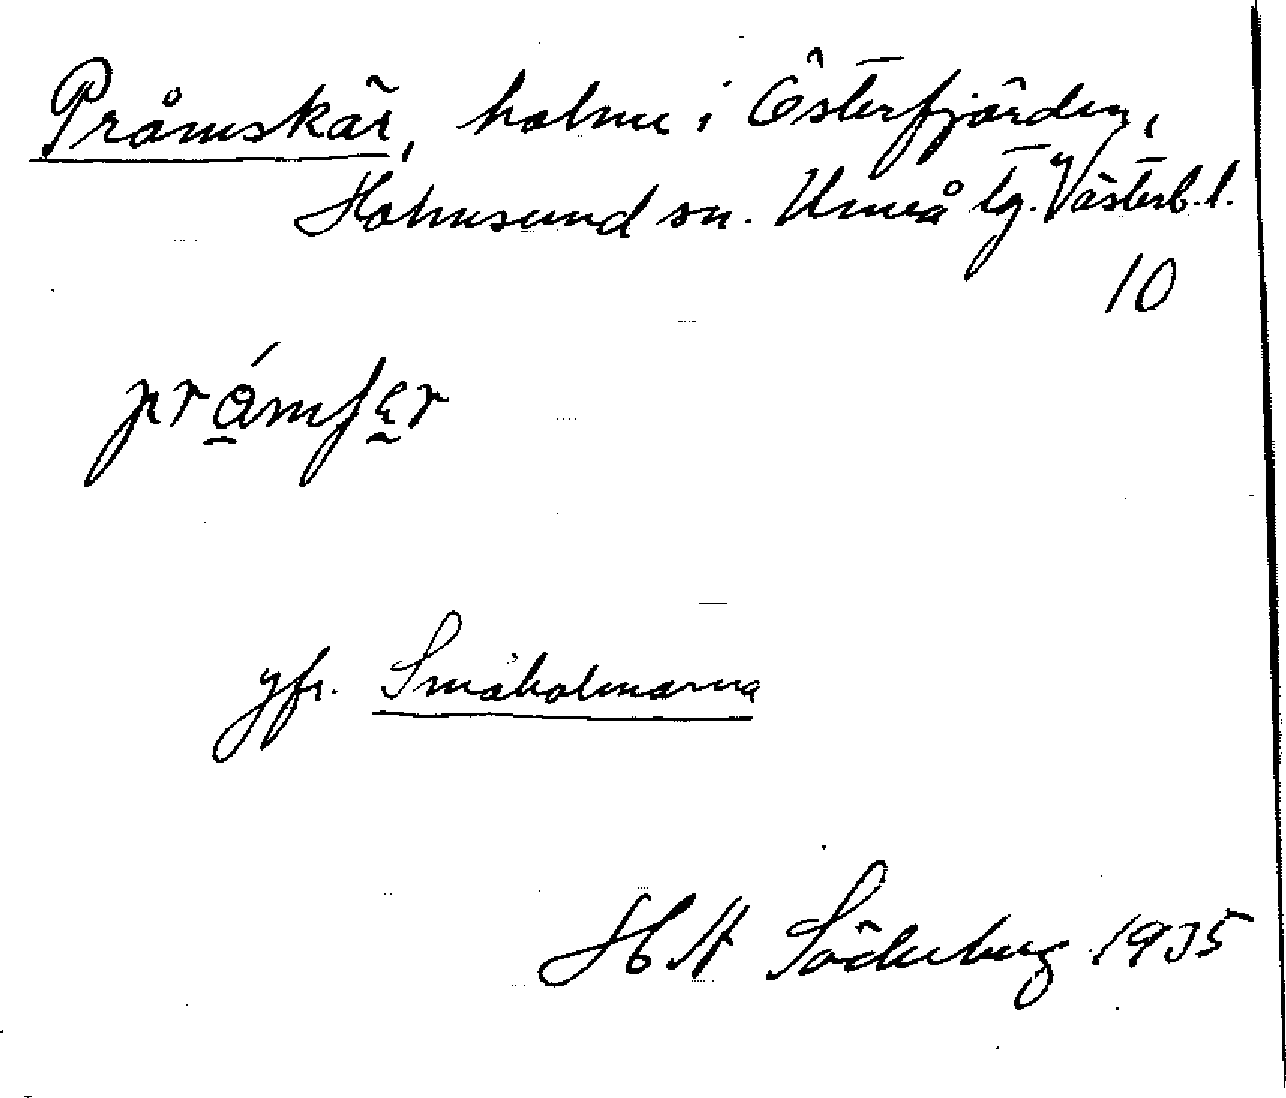 Pråmskär, holme i Österfjärden,
Holmsund sn. Umeå tg. Västerb. l.
10
jfr. Småholmarna
H A Söderberg 1935